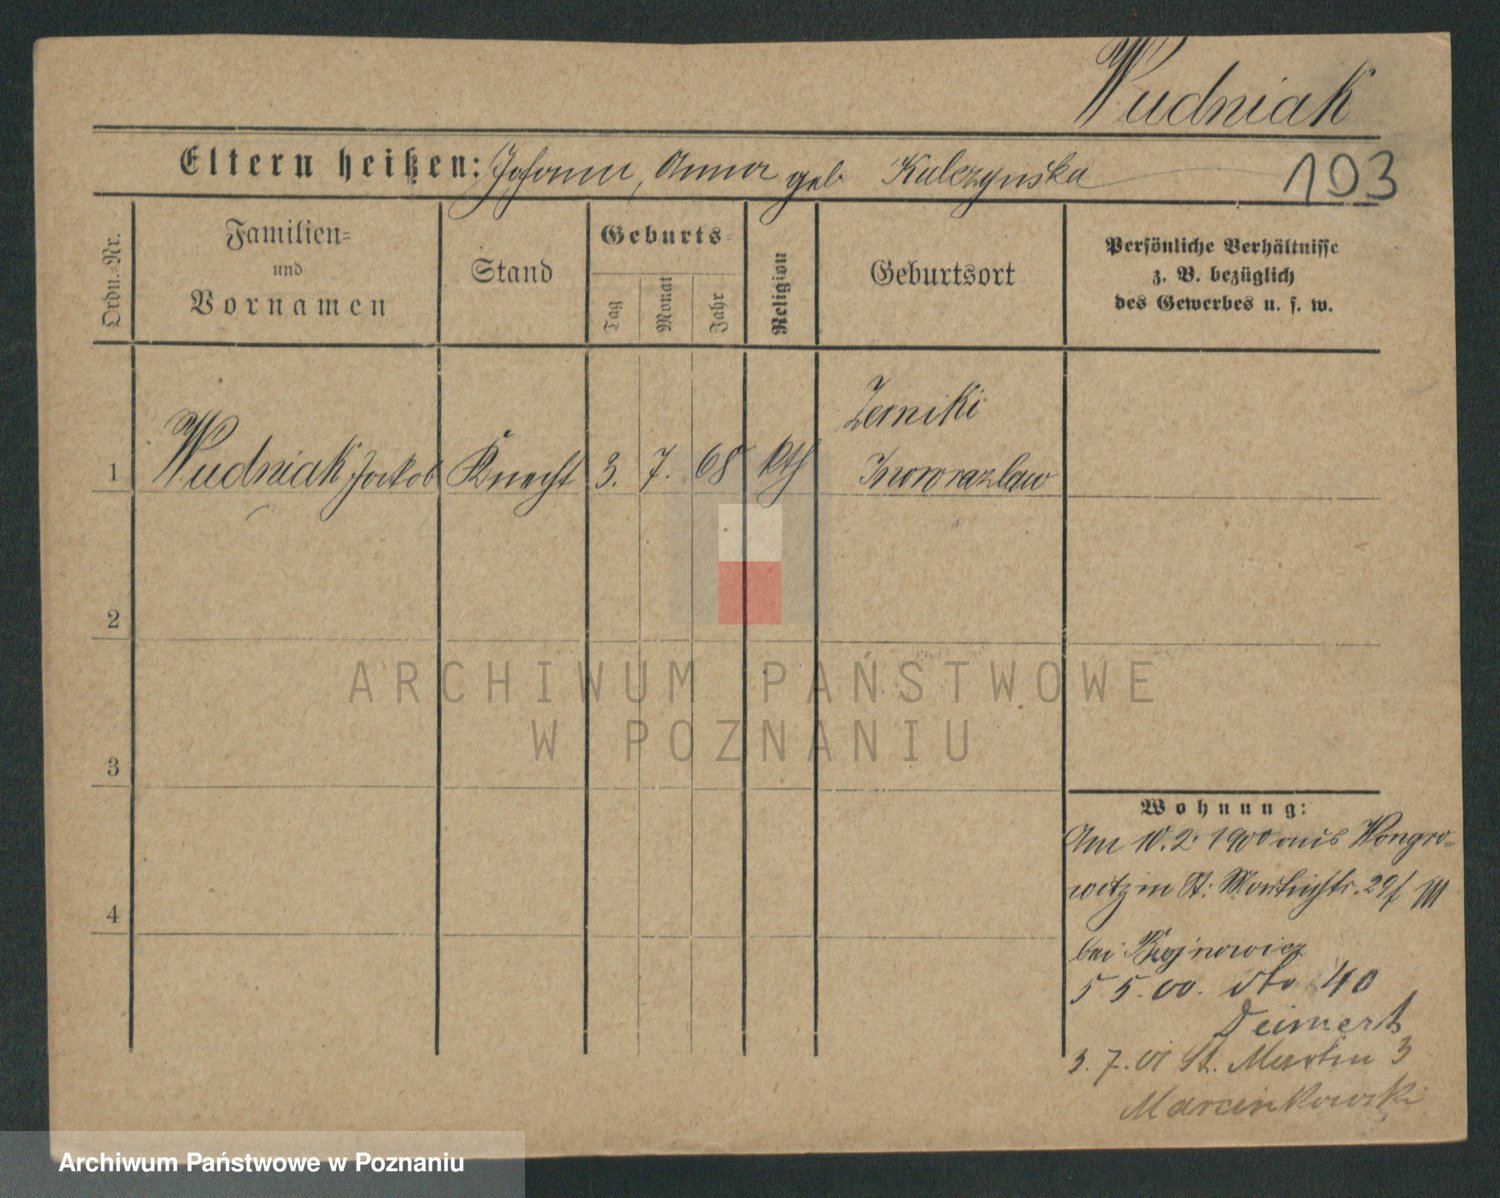 Wudniak
Eltern heißen: Johann, Anna geb Kulczynska
103
Ordn.-Nr.
Familien-
und
Vornamen
Stand
Geburts-
Tag
Monat
Jahr
Religion
Geburtsort
Persönliche Verhältnisse
z. B. bezüglich
des Gewerbes u. s. w.
Zerniki
1 Wudniak Jakob Knecht 3. 7. 68 kth Inowrazlaw
2
3
4
ARCHIWUM PAŃSTWOWE
W POZNANIU
Wohnung:
Am 10.2. 1900 aus Wongro-
witz in St. Martinstr. 29/ III
bei
5. 5. 00. dto 40
Deimert
3. 7. 01 St. Martin 3
Marcinkowski
Archiwum Państwowe w Poznaniu